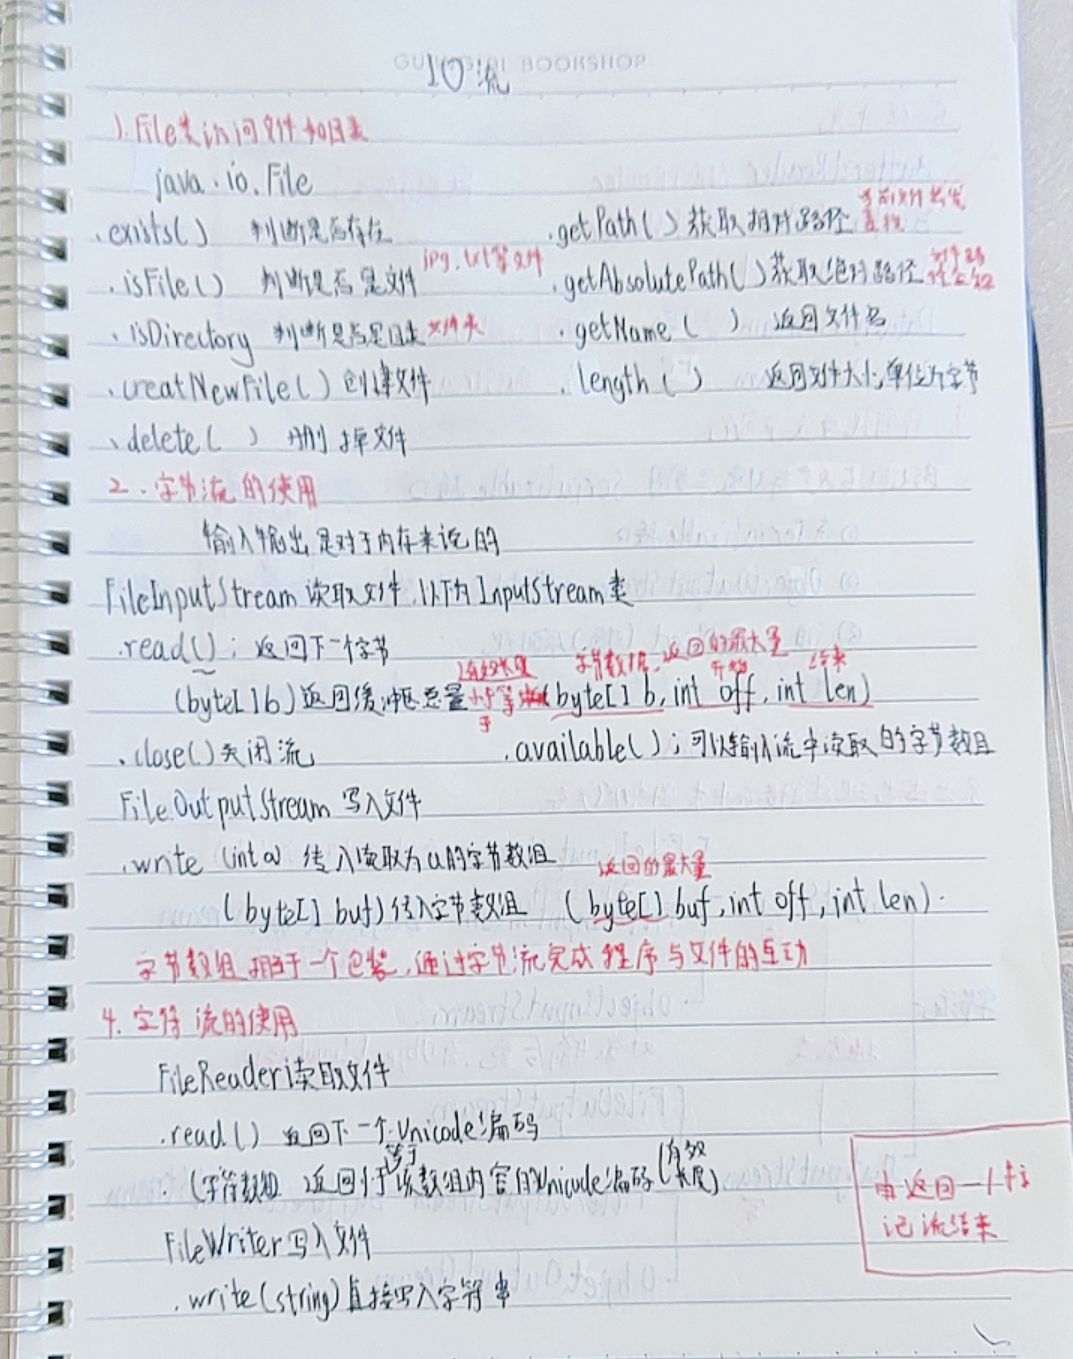 BOOKSHOP
IO流
1.File类访问文件和目录
java.io.File
.exists() 判断是否存在
.getPath() 获取相对路径 当前文件出发
.isFile() 判断是否是文件 jpg.txt等文件
.getAbsolutePath() 获取绝对路径
.isDirectory 判断是否是目录 文件夹
.getName( ) 返回文件名
.creatNewFile() 创建文件
.length( ) 返回文件大小,单位为字节
.delete( ) 删掉文件
2.字节流的使用
输入输出是对于内存来说的
FileInputStream 读取文件,以下为InputStream类
.read(); 返回下一个字节
有效长度 字节数据,返回的最大量
开始 结束
(byte[]b)返回缓冲区总量 小于等于 (byte[] b,int off,int len)
.close()关闭流
.available();可以输入流中读取的字节数且
FileOutputStream 写入文件
.write (int a) 传入读取为a的字节数组
返回的最大量
(byte[] buf)传入字节数组 (byte[] buf,int off,int len).
字节数组相当于一个包装,通过字节流完成程序与文件的互动
4.字符流的使用
FileReader读取文件
.read() 返回下一个Unicode编码
等于
(字符数组) 返回小于该数组内容的Unicode编码(有效长度)
FileWriter写入文件
.write(string)直接写入字符串
返回一个标
记 流结束